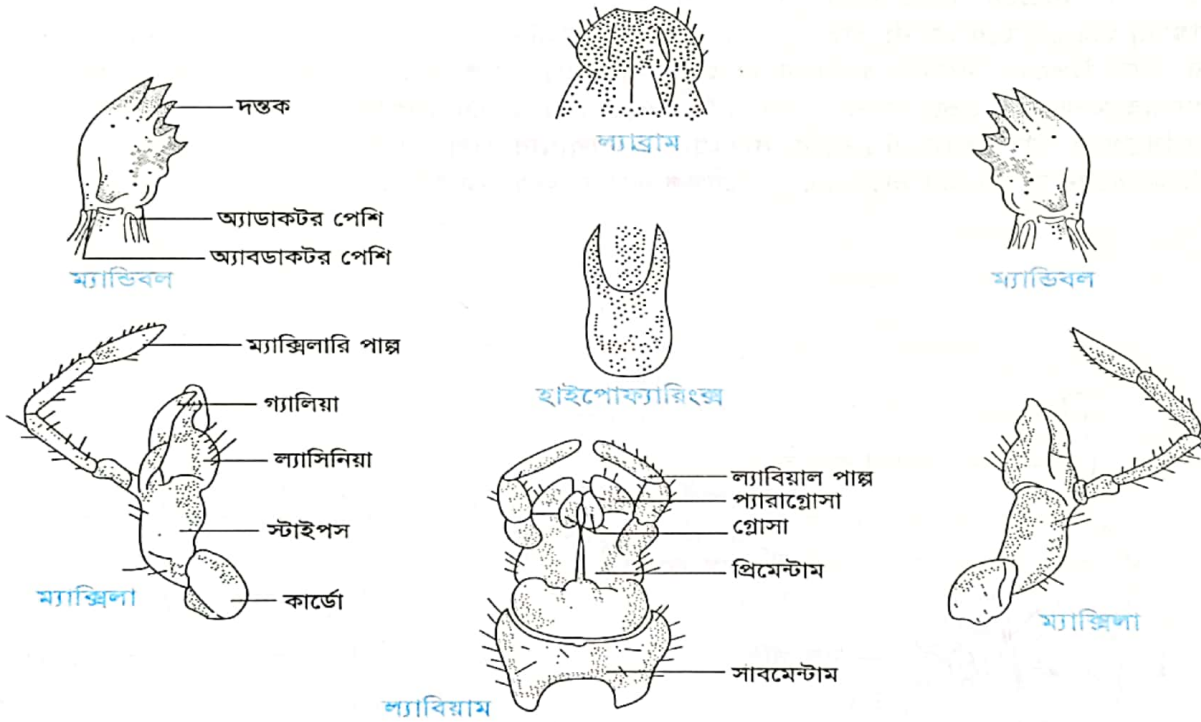 ল্যাব্রাম
দন্তক
অ্যাডাকটর পেশি
অ্যাবডাকটর পেশি
ম্যান্ডিবল
ম্যান্ডিবল
ম্যাক্সিলারি পাল্প
গ্যালিয়া
ল্যাসিনিয়া
স্টাইপস
কার্ডো
ম্যাক্সিলা
হাইপোফ্যারিংক্স
ল্যাবিয়াল পাল্প
প্যারাগ্লোসা
গ্লোসা
প্রিমেন্টাম
সাবমেন্টাম
ল্যাবিয়াম
ম্যাক্সিলা